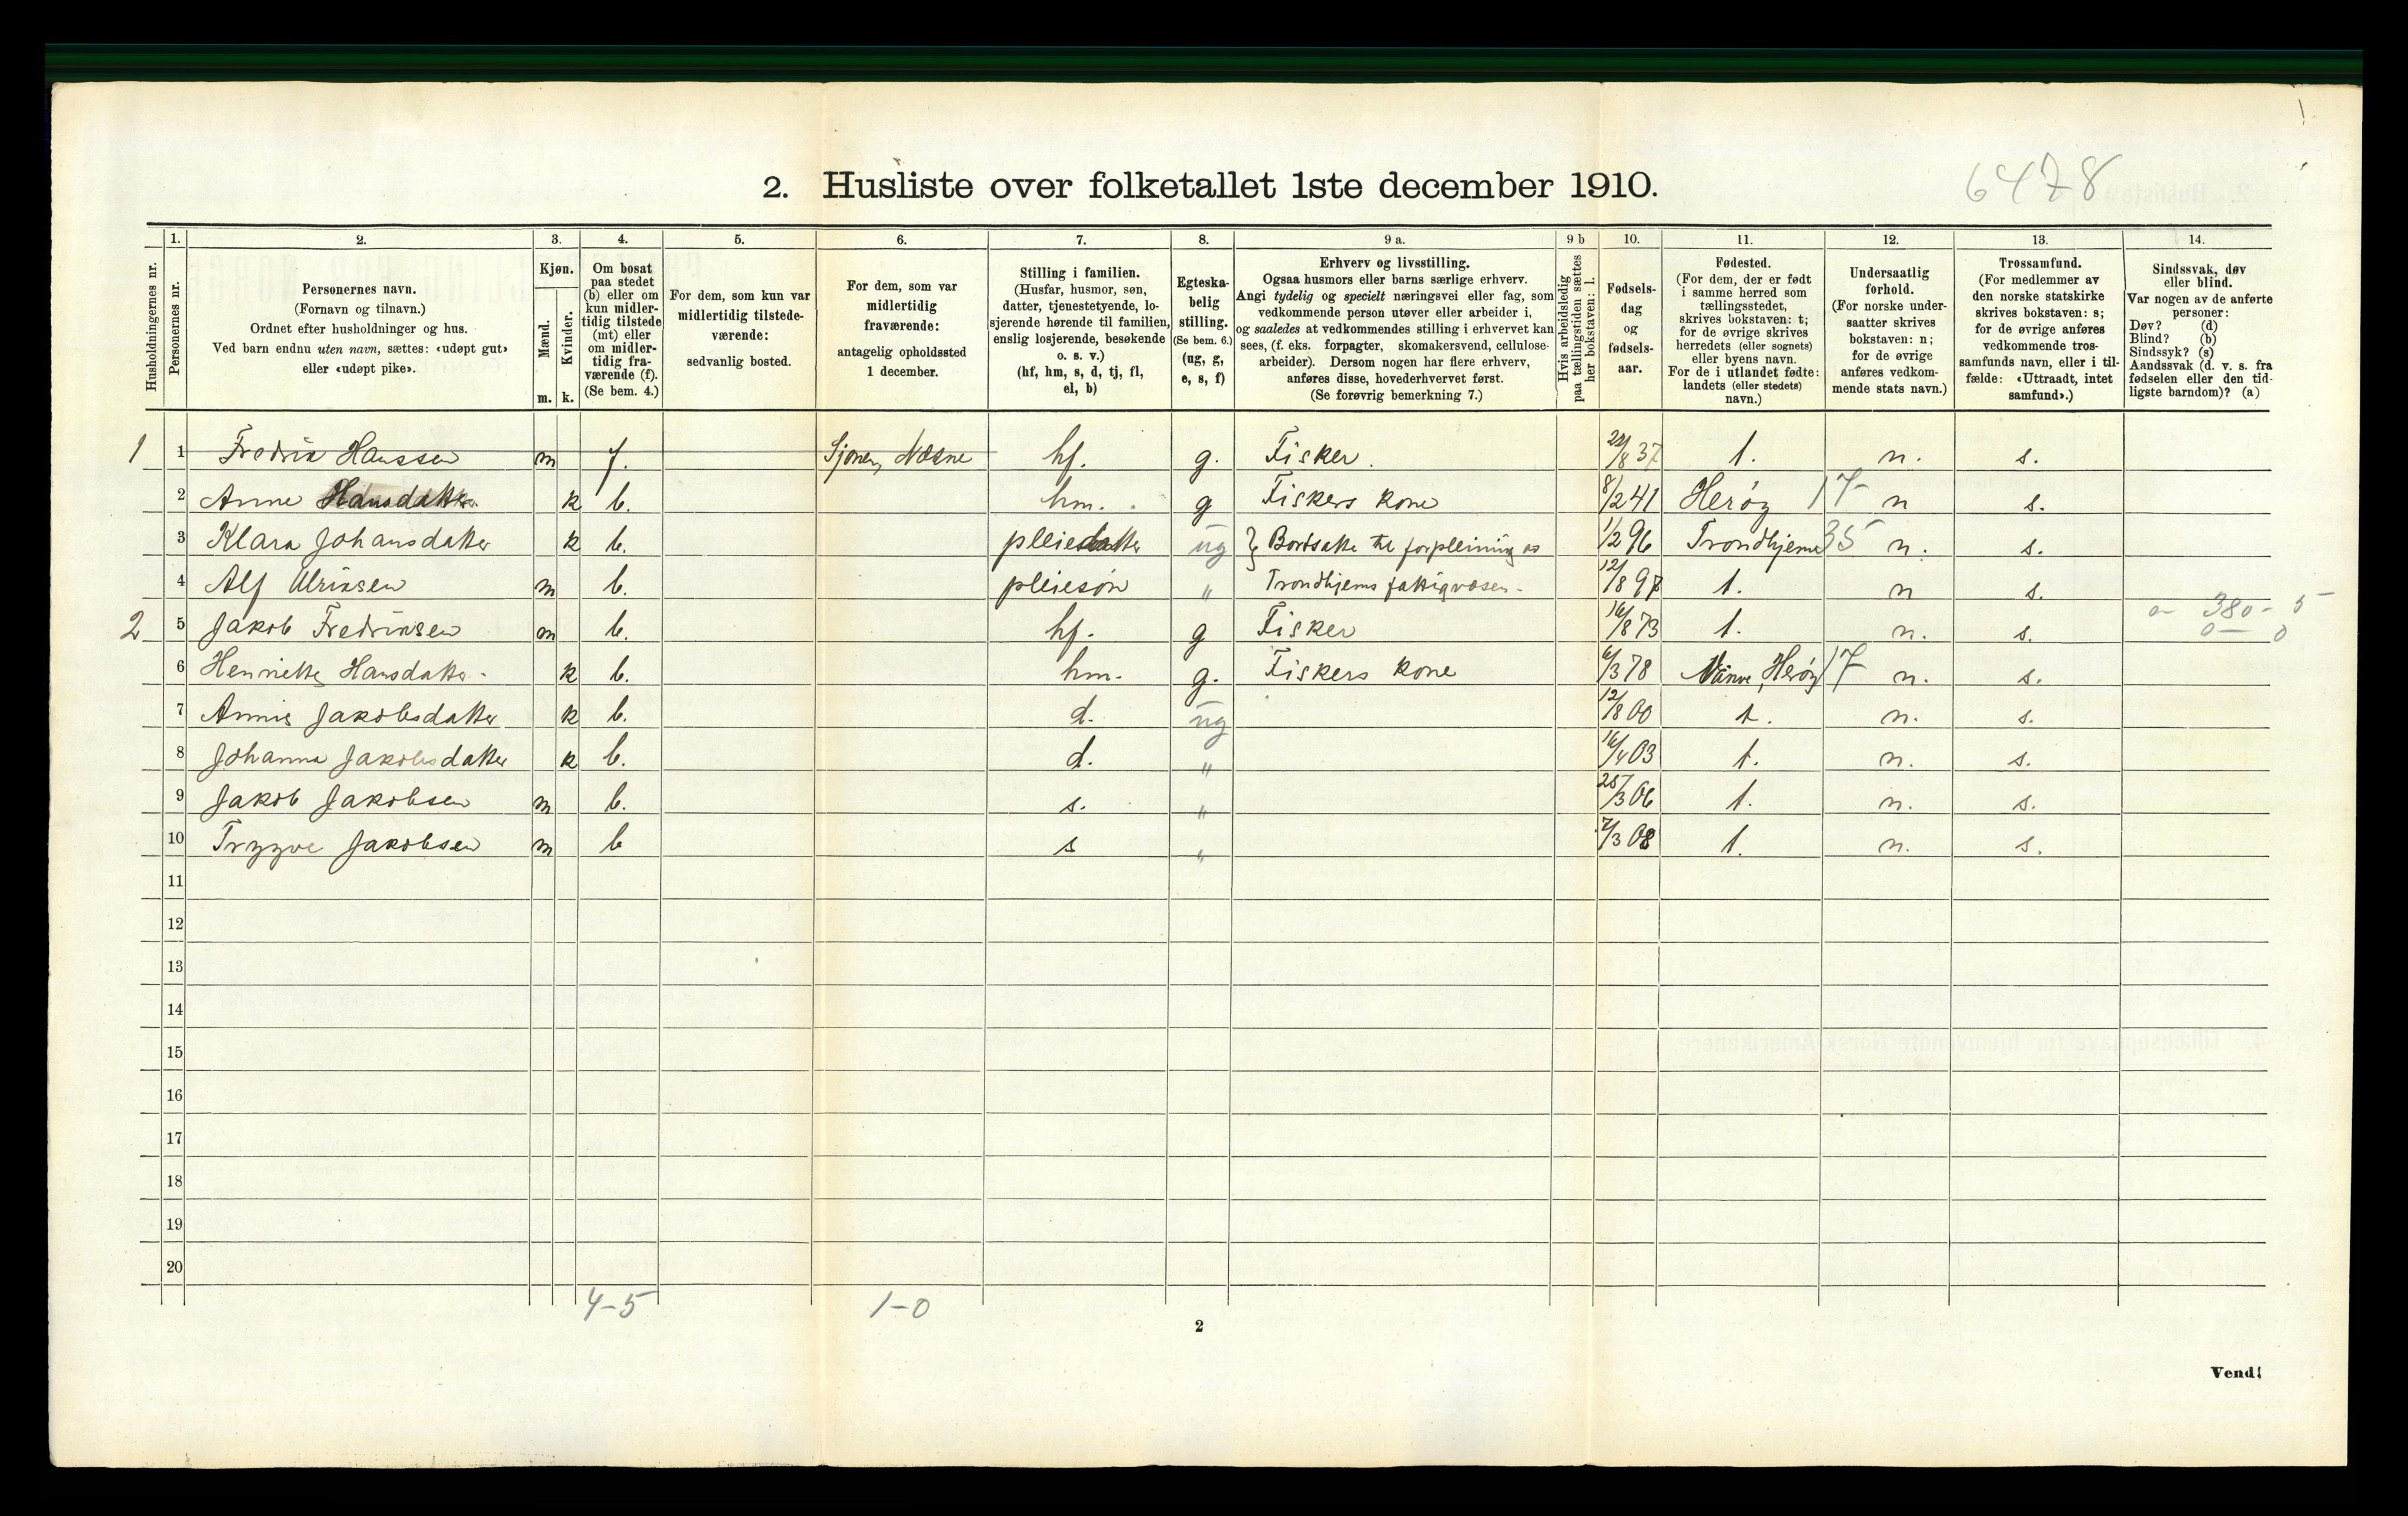 2. Husliste over folketallet 1ste december 1910.
6478
Husholdningernes nr.
1.
Personernes nr.
2.
Personernes navn.
(Fornavn og tilnavn.)
Ordnet efter husholdninger og hus.
Ved barn endnu uten navn, sættes: «udøpt gut»
eller «udøpt pike».
3.
Kjøn.
Mænd.
Kvinder.
m. k.
4.
Om bosat
paa stedet
(b) eller om
kun midler-
tidig tilstede
(mt) eller
om midler-
tidig fra-
værende (f).
(Se bem. 4.)
5.
For dem, som kun var
midlertidig tilstede-
værende:
sedvanlig bosted.
6.
For dem, som var
midlertidig
fraværende:
antagelig opholdssted
1 december.
7.
Stilling i familien.
(Husfar, husmor, søn,
datter, tjenestetyende, lo-
sjerende hørende til familien,
enslig losjerende, besøkende
o. s. v.)
(hf, hm, s, d, tj, fl,
el, b)
8.
Egteska-
belig
stilling.
(Se bem. 6.)
(ug, g,
e, s, f)
9 a.
Erhverv og livsstilling.
Ogsaa husmors eller barns særlige erhverv.
Angi tydelig og specielt næringsvei eller fag, som
vedkommende person utøver eller arbeider i,
og saaledes at vedkommendes stilling i erhvervet kan
sees, (f. eks. forpagter, skomakersvend, cellulose-
arbeider). Dersom nogen har flere erhverv,
anføres disse, hovederhvervet først.
(Se forøvrig bemerkning 7.)
9 b
Hvis arbeidsledig
paa tællingstiden sættes
her bokstaven: l.
10.
Fødsels-
dag
og
fødsels-
aar.
11.
Fødested.
(For dem, der er født
i samme herred som
tællingsstedet,
skrives bokstaven: t;
for de øvrige skrives
herredets (eller sognets)
eller byens navn.
For de i utlandet fødte:
landets (eller stedets)
navn.)
12.
Undersaatlig
forhold.
(For norske under-
saatter skrives
bokstaven: n;
for de øvrige
anføres vedkom-
mende stats navn.)
13.
Trossamfund.
(For medlemmer av
den norske statskirke
skrives bokstaven: s;
for de øvrige anføres
vedkommende tros-
samfunds navn, eller i til-
fælde: «Uttraadt, intet
samfund».)
14.
Sindssvak, døv
eller blind.
Var nogen av de anførte
personer:
Døv? (d)
Blind? (b)
Sindssyk? (s)
Aandssvak (d. v. s. fra
fødselen eller den tid-
ligste barndom)? (a)
1 1 Fredrik Hanssen m f. Sjonen, Næsne hf. g. Fisker. 22/8 37 t. n. s.
2 Anne Hansdatter k b. hm. g Fiskers kone 8/2 41 Herøy 17 n s.
3 Klara Johansdatter k b. pleiedatter ug } Bortsatte til forpleining av 1/2 96 Trondhjem 35 n. s.
4 Alf Ulriksen m b. pleiesøn " Trondhjems fattigvæsen. 12/8 97 t. n s.
2 5 Jakob Fredriksen m b. hf. g Fisker 16/8 73 t. n. s. 0 - 380 - 5
0 - 0
6 Henriette Hansdatter. k b. hm. g. Fiskers kone 6/3 78 Herøy 17 n. s.
7 Annie Jakobsdatter k b. d. ug 12/8 00 t. n. s.
8 Johanna Jakobsdatter k b. d. " 16/4 03 t. n. s.
9 Jakob Jakobsen m b. s. " 25/3 06 t. n. s.
10 Trygve Jakobsen m b s " 7/3 08 t. n. s.
11
12
13
14
15
16
17
18
19
20
4-5 1-0
2
Vend!